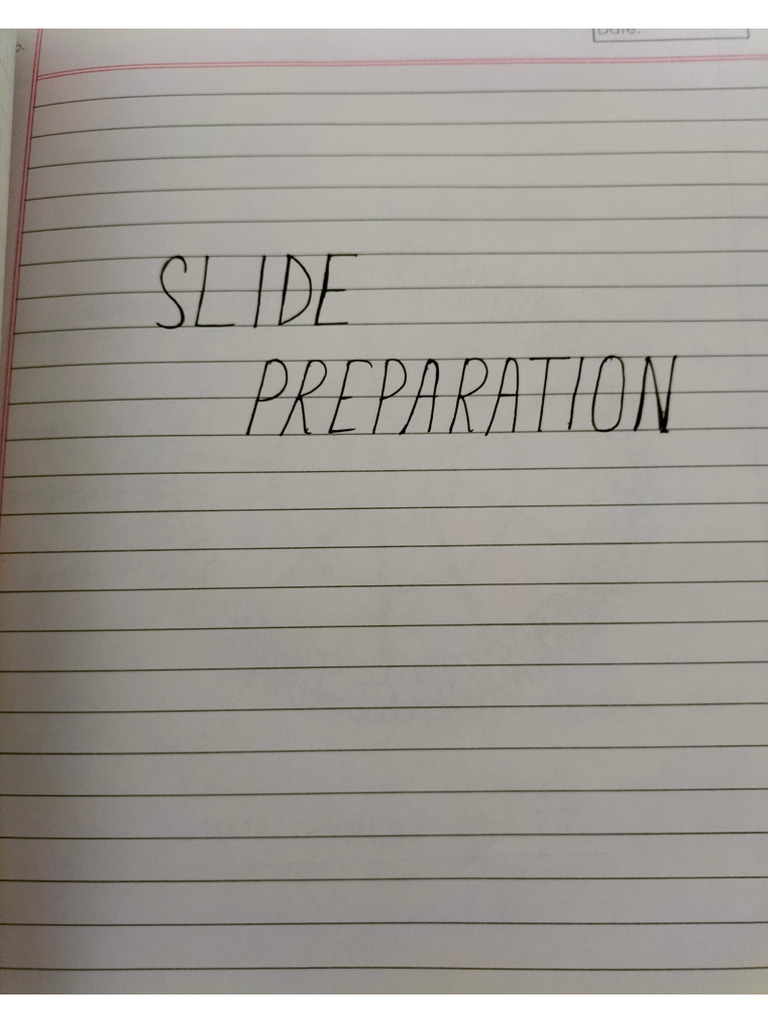 Date:
SLIDE
PREPARATION